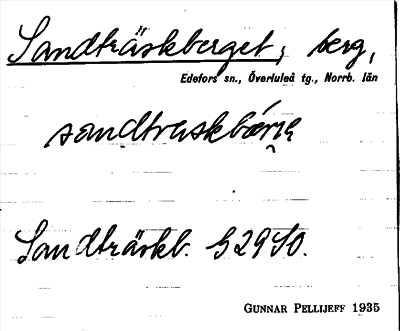 Sandträskberget, berg,
Edefors sn., Överluleå tg., Norrb. län
Sandträskb. S29SO.
GUNNAR PELLIJEFF 1935